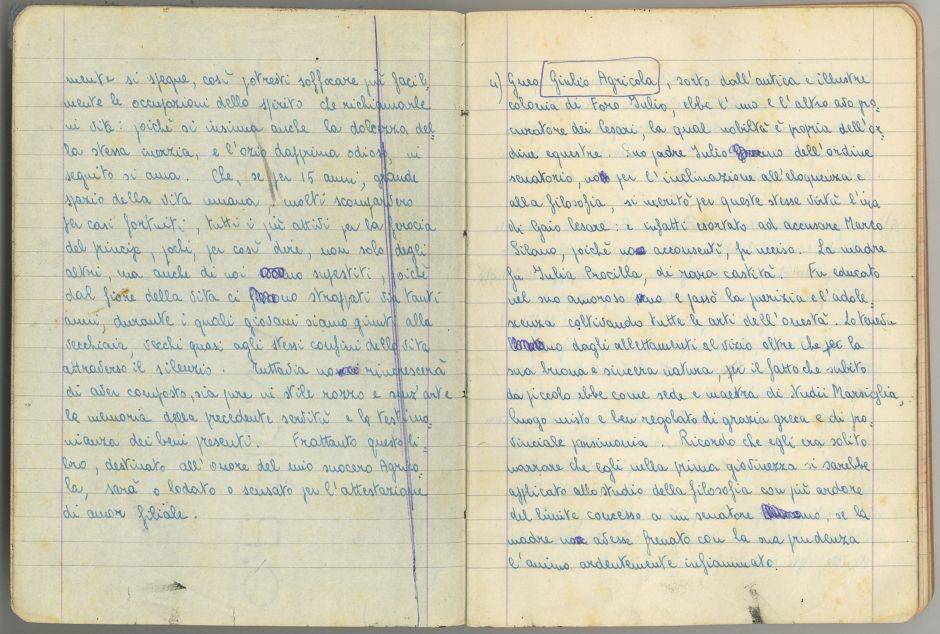 mente si spegne, così potresti soffocare più facil-
mente le occupazioni dello spirito che richiamarle
in vita: poiché si insinua anche la dolcezza del-
la stessa inerzia, e l'ozio dapprima odioso, in
seguito si ama. Che, se per 15 anni, grande
spazio della vita umana, molti scomparvero
per casi fortuiti, tutti i più attivi per la ferocia
del principe, pochi, per così dire, non solo degli
altri, ma anche di noi superstiti, poiché
dal fiore della vita ci strappati via tanti
anni, durante i quali giovani siamo giunti alla
vecchiaia, vecchi quasi agli stessi confini della vita
attraverso il silenzio. Tuttavia non rincrescerà
di aver composto, sia pure in stile rozzo e senz'arte
la memoria della precedente servitù e la testimo-
nianza dei beni presenti. Frattanto questo li-
bro, destinato all'onore del mio suocero Agrico-
la, sarà o lodato o scusato per l'attestazione
di amor filiale.
4) Gneo Giulio Agricola, sorto dall'antica e illustre
colonia di Foro Iulio, ebbe l'uno e l'altro avo pro-
curatore dei Cesari, la qual nobiltà è propria dell'or-
dine equestre. Suo padre Iulio dell'ordine
senatorio, per l'inclinazione all'eloquenza e
alla filosofia, si meritò per queste stesse virtù l'ira
di Gaio Cesare: e infatti esortato ad accusare Marco
Silano, poiché non acconsentì, fu ucciso. La madre
fu Iulia Procilla, di rara castità. Fu educato
nel suo amoroso e passò la puerizia e l'adole-
scenza coltivando tutte le arti dell'onestà. Lo
dagli allettamenti al vizio oltre che per la
sua buona e sincera natura, per il fatto che subito
da piccolo ebbe come sede e maestra di studii Marsiglia,
luogo misto e ben regolato di grazia greca e di pro-
vinciale parsimonia. Ricordo che egli era solito
narrare che egli nella prima giovinezza si sarebbe
applicato allo studio della filosofia con più ardore
del limite concesso a un senatore se la
madre non avesse frenato con la sua prudenza
l'animo ardentemente infiammato.